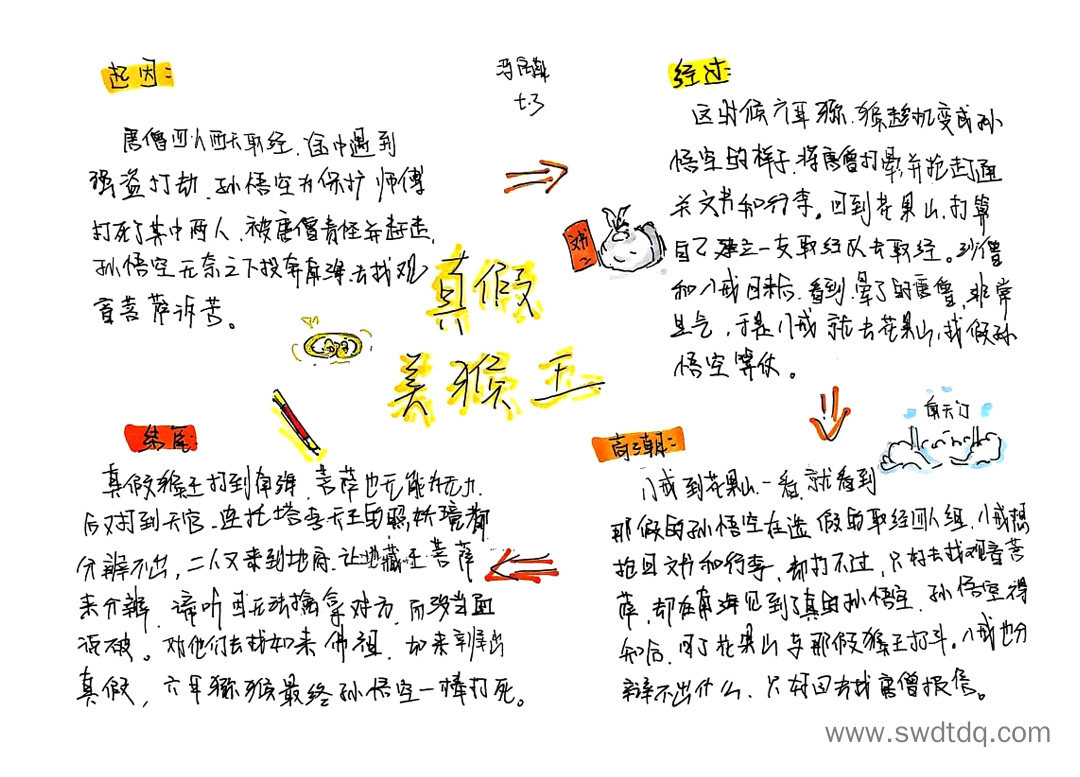 起因:
唐僧四人西天取经,途中遇到
强盗打劫,孙悟空为保护师傅
打死了其中两人,被唐僧责任并赶走,
孙悟空无奈之下投奔南海去找观
音菩萨诉苦。
七.3
真假
美猴王
文书
经过:
这时候六耳猕猴趁机变成孙
悟空的样子,将唐僧打晕并抢走通
关文书和行李。回到花果山,打算
自己独立一支取经队去取经。沙僧
和八戒回来后,看到晕了的唐僧,非常
生气,于是八戒就去花果山,找假孙
悟空算仗。
南天门
高潮:
八戒到花果山一看,就看到
那假的孙悟空在造假的取经四人组,八戒想
抢回文书和行李,却打不过,只好去找观音菩
萨,却在南海见到了真的孙悟空,孙悟空得
知后,回了花果山与那假猴王打斗。八戒也分
辩不出什么,只好回去找唐僧报信。
结尾:
真假猴王打到南海,菩萨也无能为力,
后又打到天宫,连托塔李天王的照妖境都
分辨不出,二人又来到地府,让地藏王菩萨
来分辨,谛听因无法擒拿对方,而没当面
说破。对他们去找如来佛祖,如来辛辨出
真假,六耳猕猴最终孙悟空一棒打死。
www.swdtdq.com